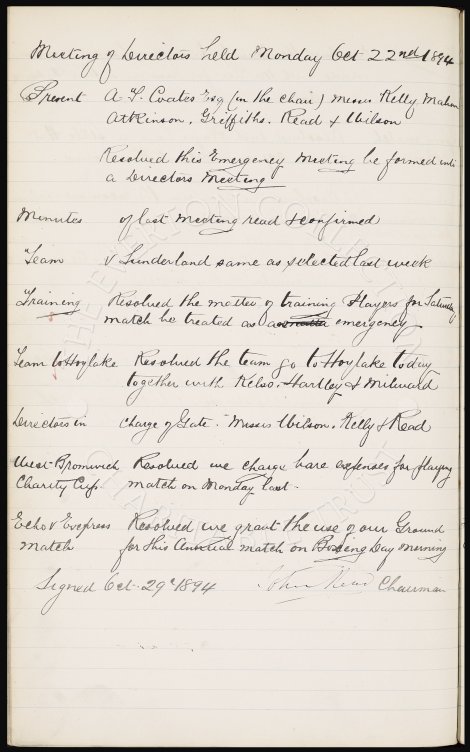 Meeting of Directors held Monday Oct 22nd 1894
Present A. T. Coates Esq (in the chair) Messrs Kelly Mahon
Atkinson, Griffiths. Read & Wilson
Resolved this Emergency Meeting be formed into
a Directors Meeting
Minutes of last Meeting read & confirmed
Team v Sunderland same as selected last week
Training Resolved the matter of training Players for Saturday
match be treated as a emergency
Team to Hoylake Resolved the team go to Hoylake today
together with Kelso, Hartley & Milward
Directors in charge of Gate. Messrs Wilson, Kelly & Read
West Bromwich Resolved we charge bare expenses for playing
Charity Cup. match on Monday last.
Echo v Express Resolved we grant the use of our Ground
match for this Annual match on Boxing Day morning
Signed Oct 29th 1894 John Read Chairman